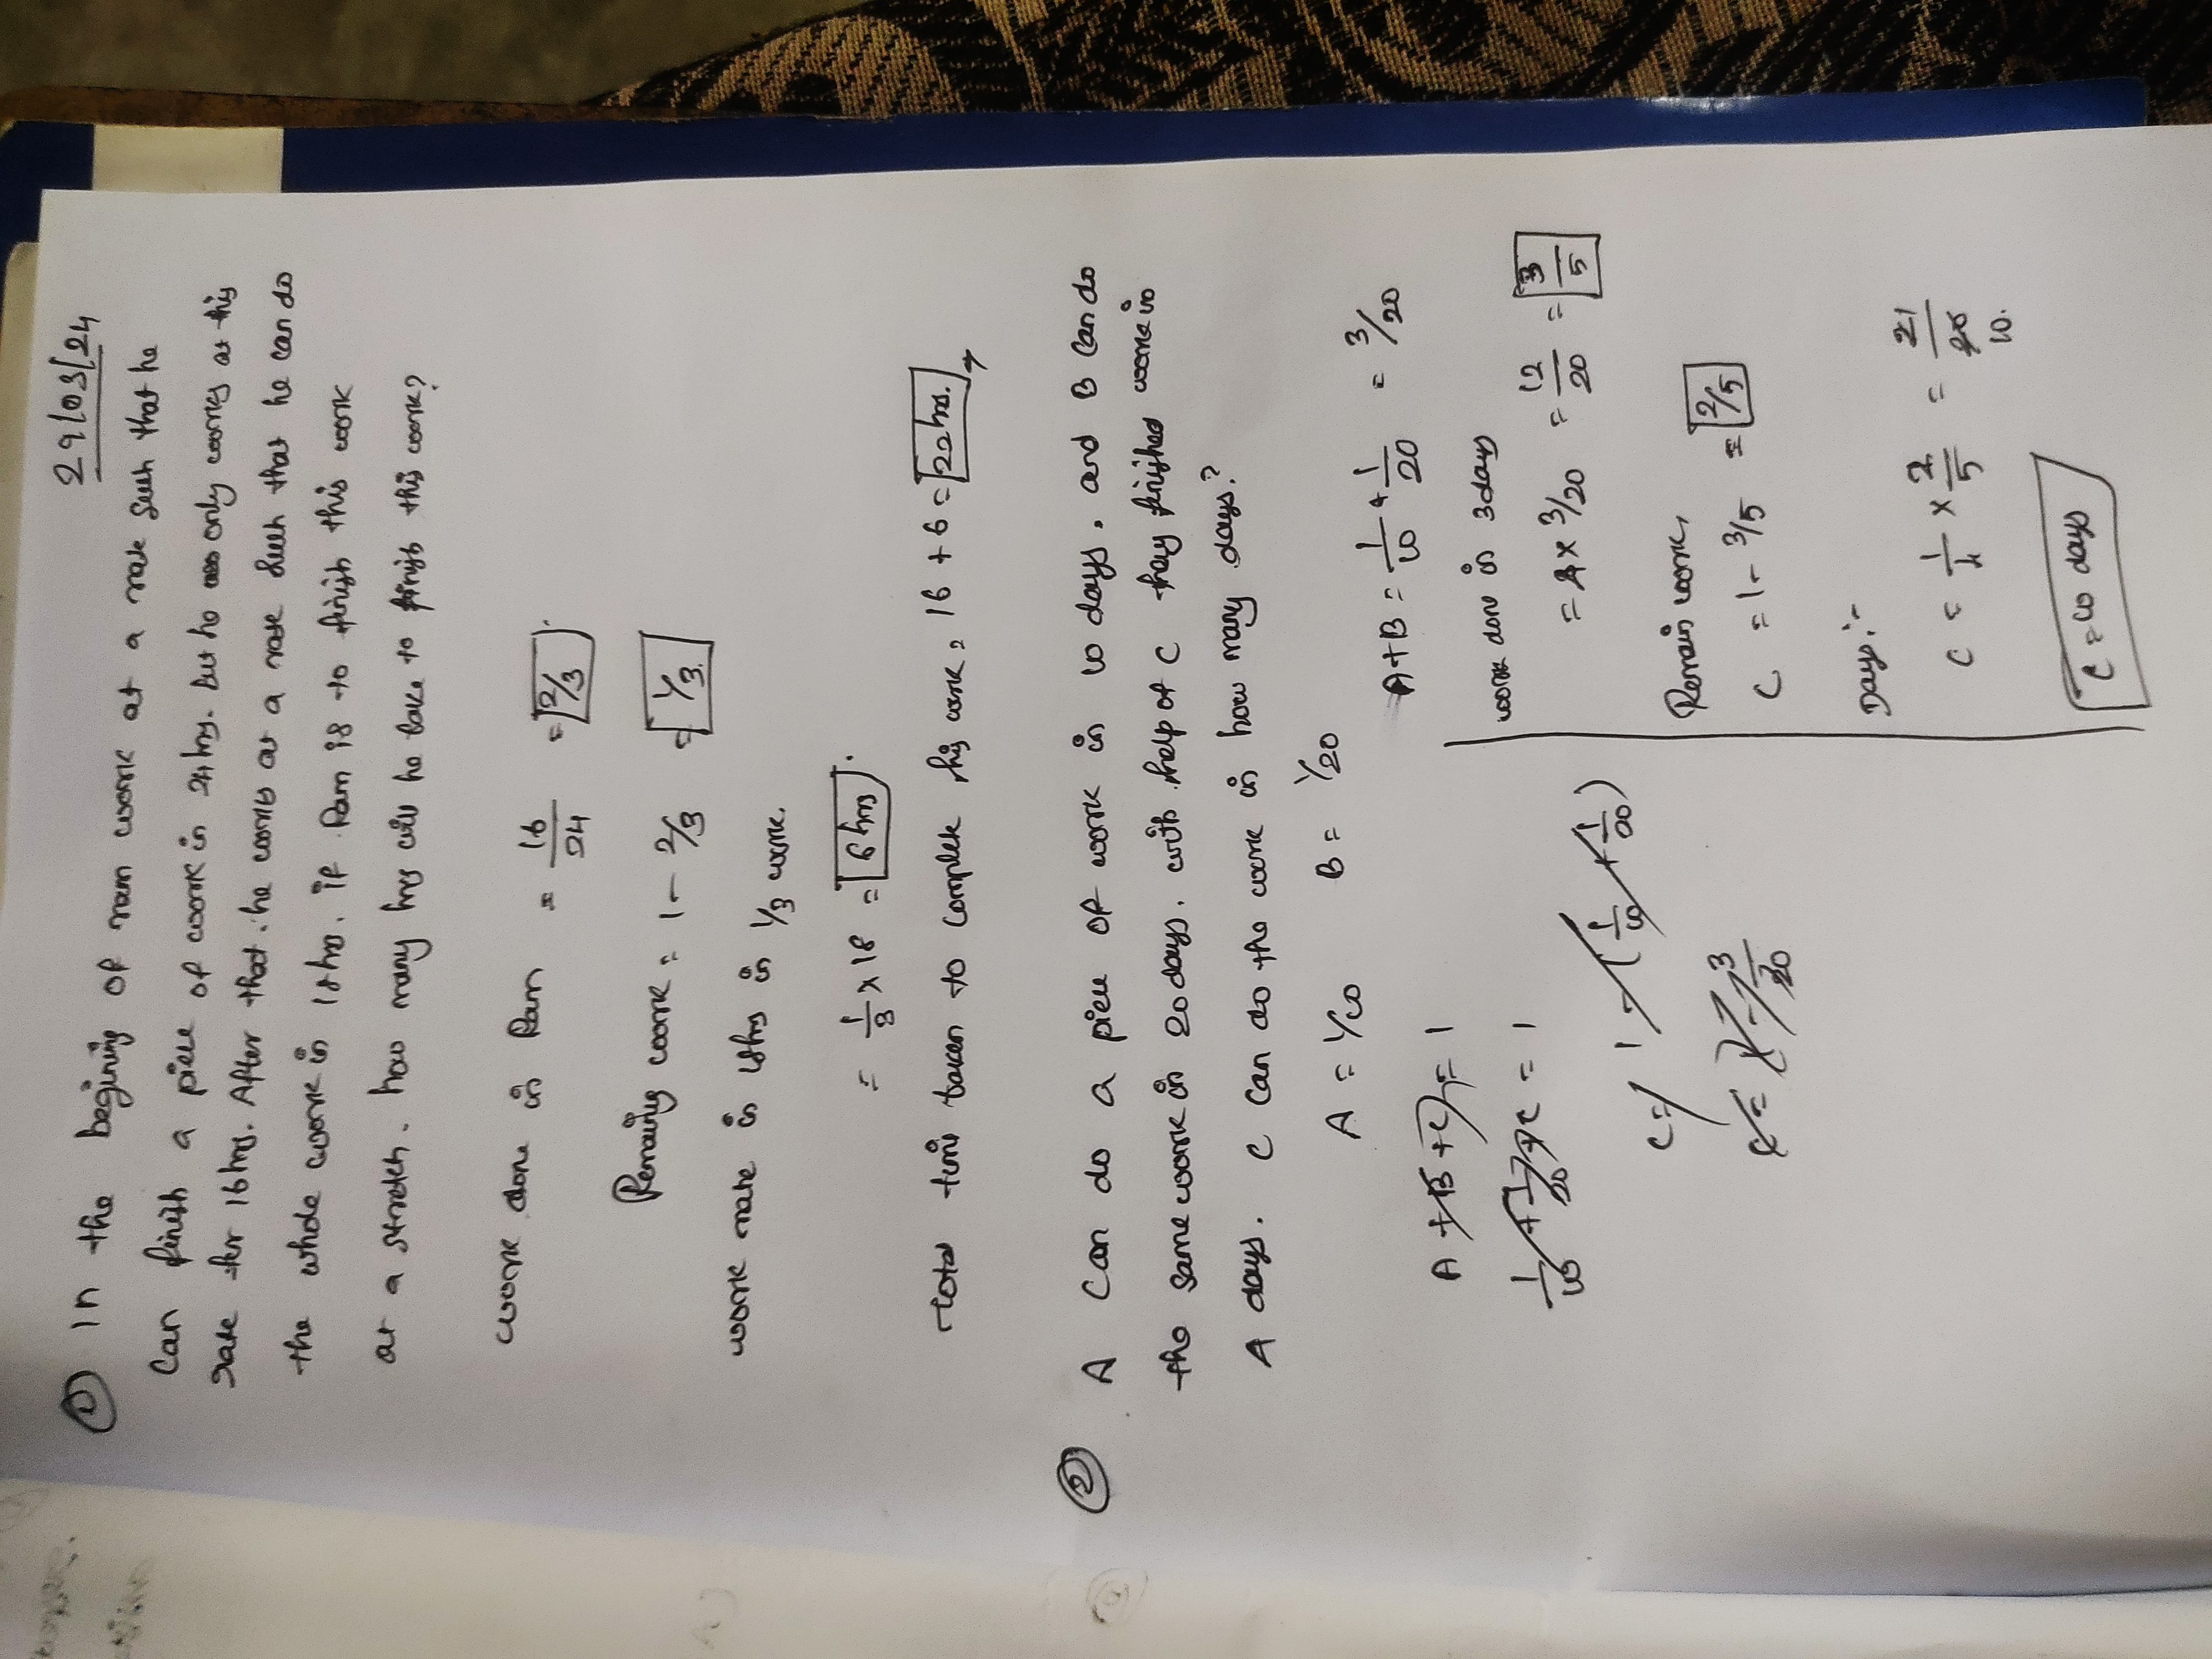 29/03/24
① In the begining of ram work at a rate such that he
can finish a piece of work in 24 hrs. but he only works at this
rate for 16 hrs. After that. he works at a rate such that he can do
the whole work in 18 hrs. if Ram is to finish this work
at a stretch. how many hrs will he take to finish this work?
work done in Ram = 16/24 = 2/3
Remaing work = 1 - 2/3 = 1/3
work rate in 18hrs in 1/3 work.
= 1/3 x 18 = 6 hrs
Total time taken to complete this work = 16 + 6 = 22 hrs.
② A can do a piece of work in 10 days. and B can do
the same work in 20 days. with help of C they finished work in
4 days. C can do the work in how many days?
A = 1/10 B = 1/20
A+B = 1/10 + 1/20 = 3/20
A + B + C = 1
1/10 + 1/20 + C = 1
C = 1 - (1/10 + 1/20)
C = 1 - 3/20
work done in 3 days
= 4 x 3/20 = 12/20 = 3/5
Remain work,
C = 1 - 3/5 = 2/5
Days:-
C = 1/4 x 2/5 = 21/20
10.
C = 10 days